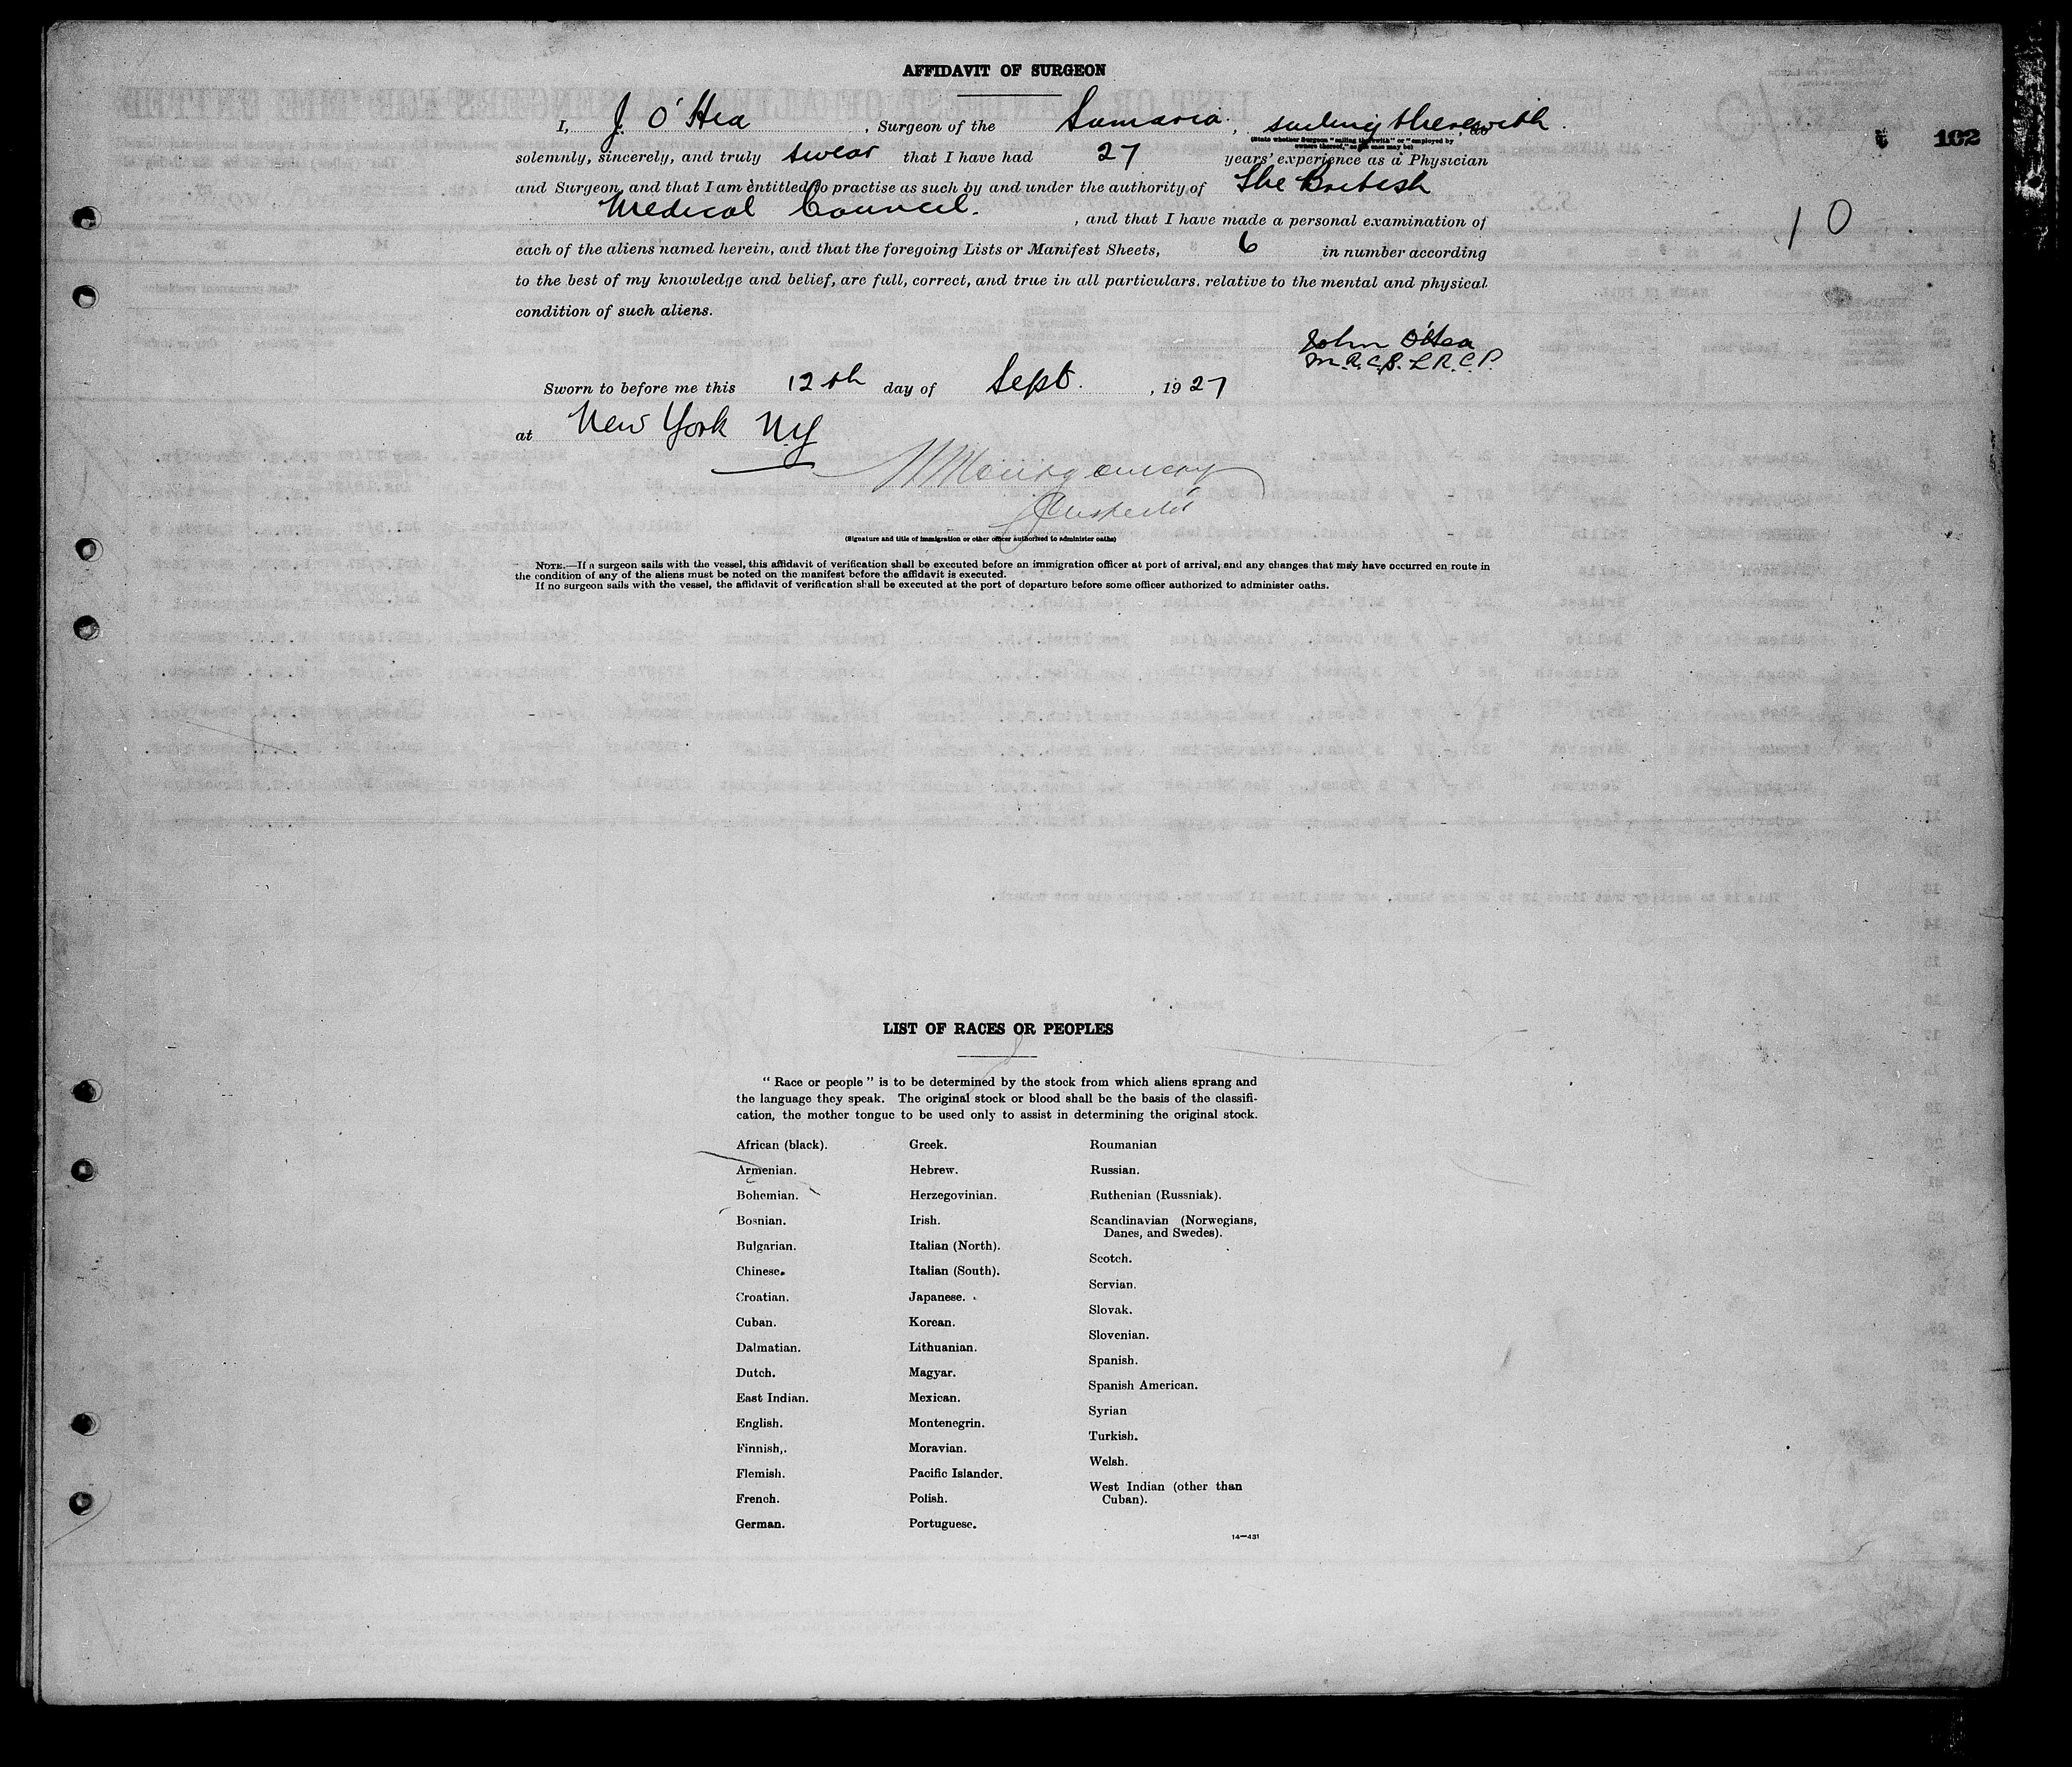 AFFIDAVIT OF SURGEON
I, J. O'Hea, Surgeon of the Samaria, sailing therewith, do
(State whether Surgeon "sailing therewith" or "employed by
owners thereof," as the case may be)
102
solemnly, sincerely, and truly swear that I have had 27 years' experience as a Physician
and Surgeon, and that I am entitled to practise as such by and under the authority of The British
Medical Council., and that I have made a personal examination of
10
each of the aliens named herein, and that the foregoing Lists or Manifest Sheets, 6 in number according
to the best of my knowledge and belief, are full, correct, and true in all particulars. relative to the mental and physical
condition of such aliens.
John O'Hea
M.R.C.S. L.R.C.P.
Sworn to before me this 12th day of Sept., 1927
at New York NY
Montgomery
(Signature and title of immigration or other officer authorised to administer oaths)
NOTE.—If a surgeon sails with the vessel, this affidavit of verification shall be executed before an immigration officer at port of arrival, and any changes that may have occurred en route in
the condition of any of the aliens must be noted on the manifest before the affidavit is executed.
If no surgeon sails with the vessel, the affidavit of verification shall be executed at the port of departure before some officer authorized to administer oaths.
LIST OF RACES OR PEOPLES
"Race or people" is to be determined by the stock from which aliens sprang and
the language they speak. The original stock or blood shall be the basis of the classifi-
cation, the mother tongue to be used only to assist in determining the original stock.
African (black).
Armenian.
Bohemian.
Bosnian.
Bulgarian.
Chinese.
Croatian.
Cuban.
Dalmatian.
Dutch.
East Indian.
English.
Finnish,.
Flemish.
French.
German.
Greek.
Hebrew.
Herzegovinian.
Irish.
Italian (North).
Italian (South).
Japanese.
Korean.
Lithuanian.
Magyar.
Mexican.
Montenegrin.
Moravian.
Pacific Islander.
Polish.
Portuguese.
Roumanian
Russian.
Ruthenian (Russniak).
Scandinavian (Norwegians,
Danes, and Swedes).
Scotch.
Servian.
Slovak.
Slovenian.
Spanish.
Spanish American.
Syrian
Turkish.
Welsh.
West Indian (other than
Cuban).
14—431